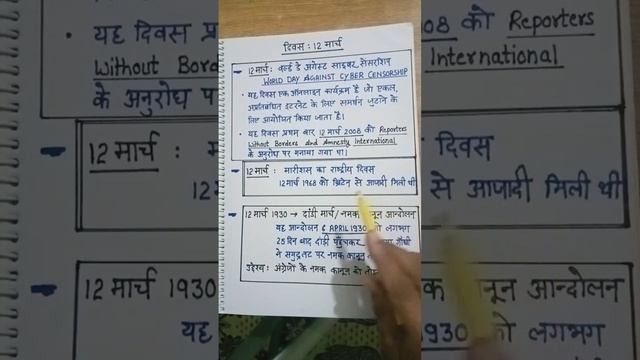 दिवस : 12 मार्च
12 मार्च : वर्ल्ड डे अगेंस्ट साइबर सेंसरशिप
WORLD DAY AGAINST CYBER CENSORSHIP
यह दिवस एक ऑनलाइन कार्यक्रम है जो एकल,
अप्रतिबंधित इंटरनेट के लिए समर्थन जुटाने के
लिए आयोजित किया जाता है।
यह दिवस प्रथम बार 12 मार्च 2008 को Reporters
Without Borders and Amnesty International
के अनुरोध पर मनाया गया था।
12 मार्च : मारीशस का राष्ट्रीय दिवस
12 मार्च 1968 को ब्रिटेन से आजादी मिली थी
12 मार्च 1930 → दांडी मार्च/नमक कानून आन्दोलन
यह आन्दोलन 6 APRIL 1930 को लगभग
25 दिन बाद दांडी पहुँचकर गाँधी
ने समुद्रतट पर नमक कानून
उद्देश्य : अंग्रेजों के नमक कानून को
यह दिवस प्र
2008 को Reporters
Without Bord
International
के अनुरोध प
12 मार्च :
दिवस
12
से आजादी मिली थी
12 मार्च 1930
कानून आन्दोलन
यह
1930 को लगभग